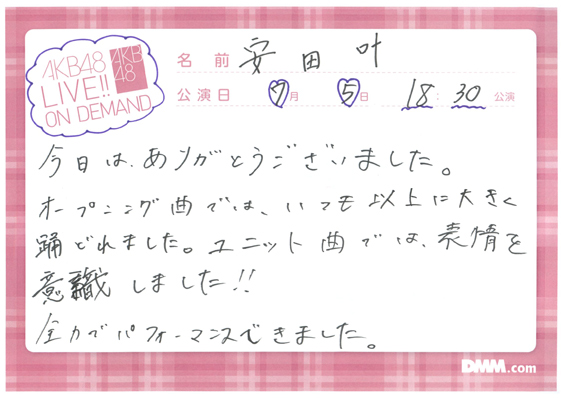 AKB48
LIVE!!
ON DEMAND
AKB
48
名前 安田叶
公演日 7月 5日 18:30 公演
今日は、ありがとうございました。
オープニング曲では、いつも以上に大きく
踊どれました。ユニット曲では、表情を
意識しました!!
全力でパフォーマンスできました。
DMM.com